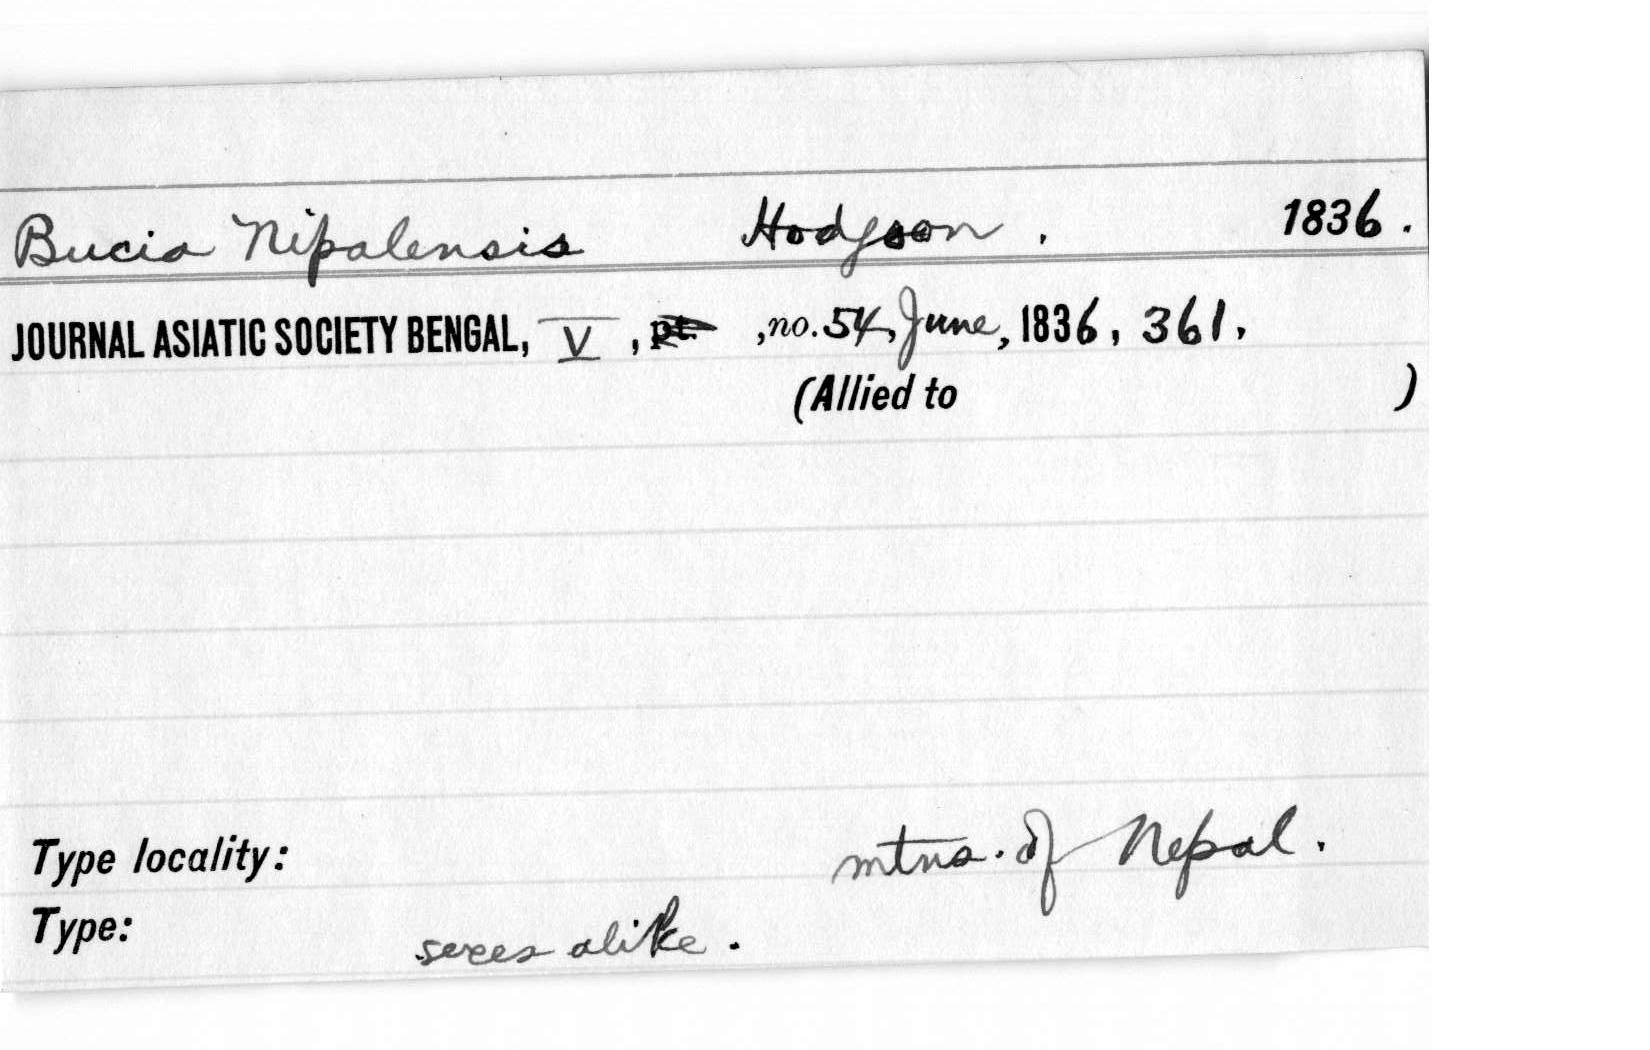 Bucia Nipalensis Hodgson. 1836.
JOURNAL ASIATIC SOCIETY BENGAL, V, pt. ,no. 54, June, 1836, 361,
(Allied to )
Type locality: mtns. of Nepal.
Type: sexes alike.